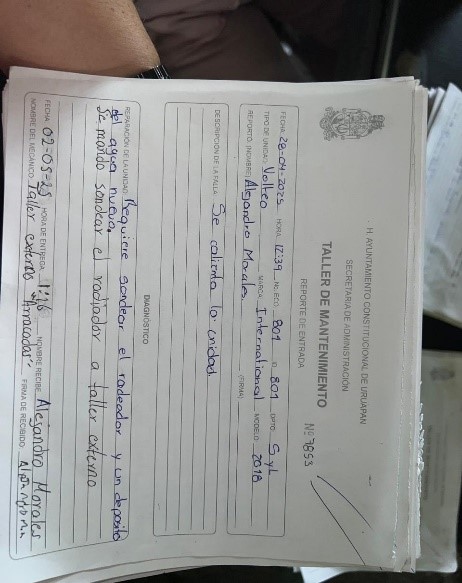 H. AYUNTAMIENTO CONSTITUCIONAL DE URUAPAN
SECRETARIA DE ADMINISTRACIÓN
TALLER DE MANTENIMIENTO
REPORTE DE ENTRADA Nº 7853
FECHA: 28-04-2025 HORA: 12:39 No. ECO. 801 ID 801 DPTO. S y L
TIPO DE UNIDAD: Volteo MARCA: International MODELO: 2018
REPORTÓ: (NOMBRE) Alejandro Morales (FIRMA)
DESCRIPCIÓN DE LA FALLA: Se calienta la unidad
DIAGNÓSTICO
REPARACIÓN DE LA UNIDAD: Requiere sondear el radeador y un deposito
de agua nueva.
Se mando sondear el radiador a taller externo
FECHA: 02-05-25 HORA DE ENTREGA: 1:26 NOMBRE RECIBE: Alejandro Morales
NOMBRE DEL MECÁNICO: Taller externo FIRMA DE RECIBIDO: